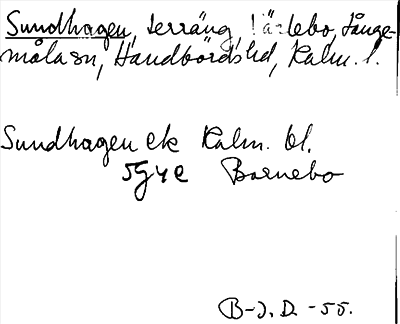 Sundhagen, terräng, Värlebo, Långe-
måla sn, Handbörds hd, Kalm. l.
Sundhagen ek Kalm. bl.
5G4e Barnebo
B-J. D. -55.